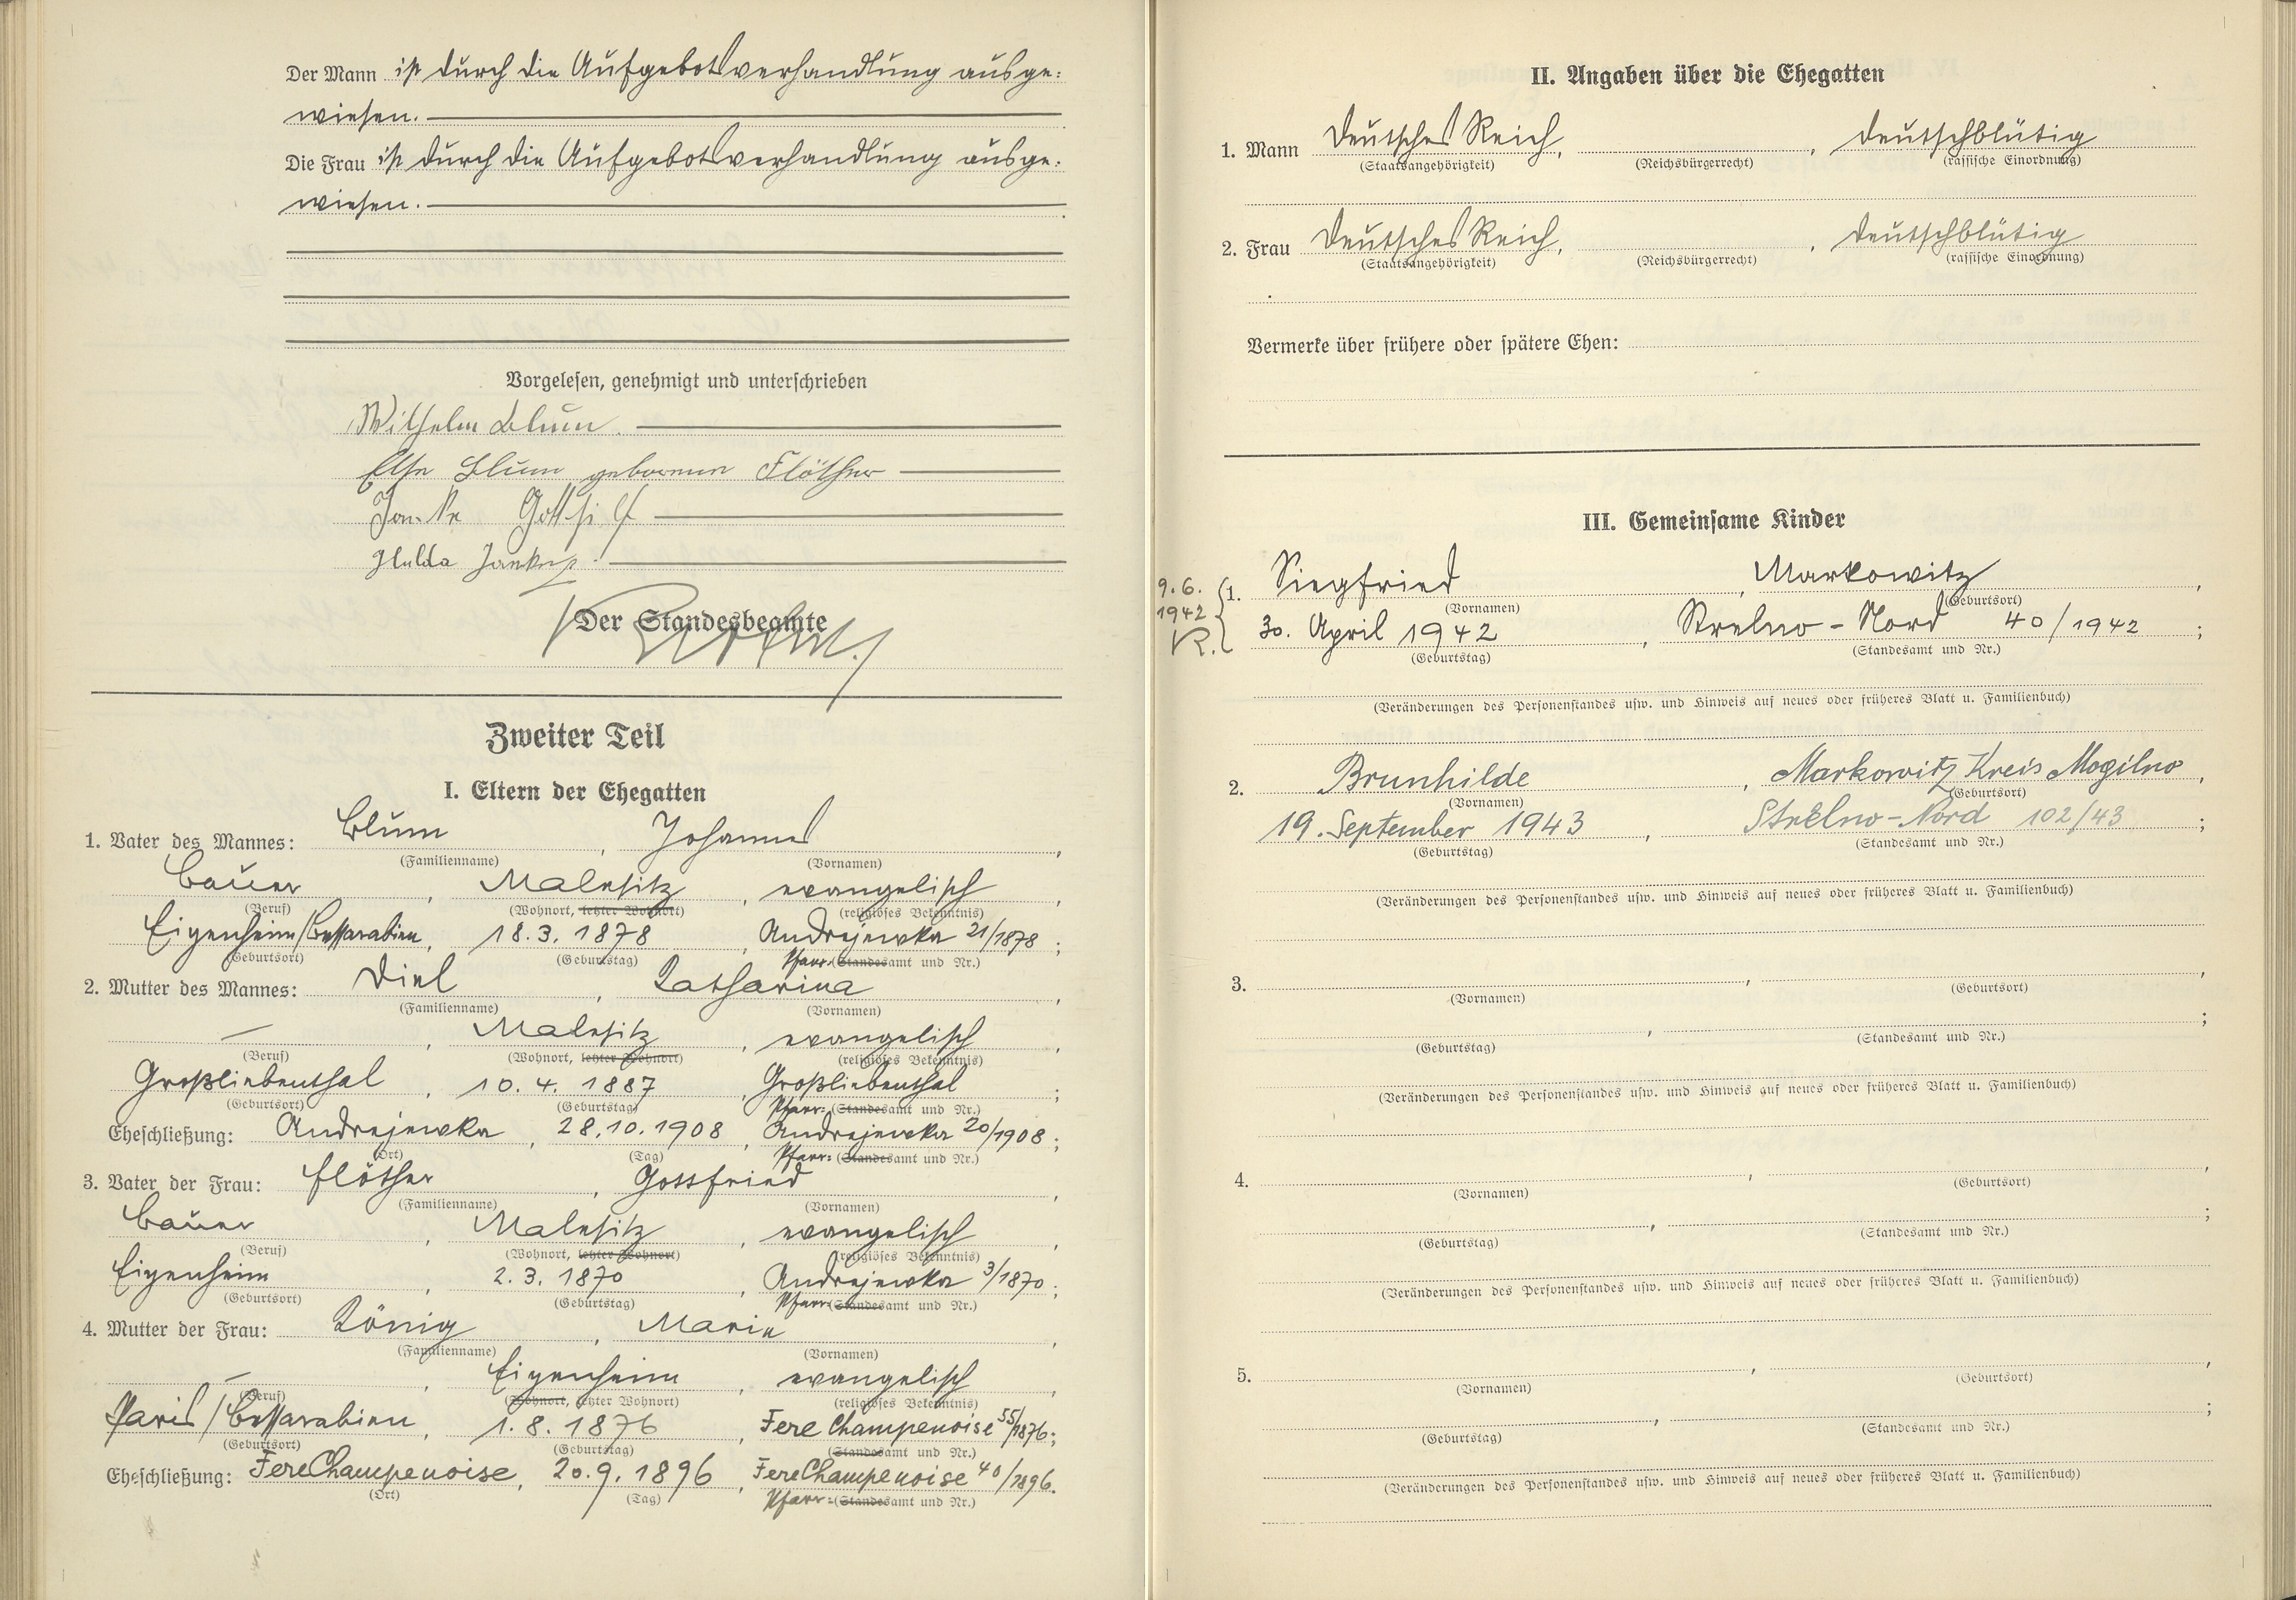 Der Mann ist durch die Aufgebotsverhandlung ausge:
wiesen.
Die Frau ist durch die Aufgebotsverhandlung ausge:
wiesen.
Vorgelesen, genehmigt und unterschrieben
Wilhelm Blum.
Else Blum geborene Flöther
Janke Gotthilf
Hulda Janke
Der Standesbeamte
Zweiter Teil
I. Eltern der Ehegatten
1. Vater des Mannes: Blum, Johannes,
(Familienname) (Vornamen)
Bauer, Malesitz, evangelisch,
(Beruf) (Wohnort, letzter Wohnort) (religiöses Bekenntnis)
Eigenheim/Bessarabien, 18.3.1878, Andrejewka 21/1878;
(Geburtsort) (Geburtstag) Pfarr-(Standesamt und Nr.)
2. Mutter des Mannes: Diel, Katharina,
(Familienname) (Vornamen)
—, Malesitz, evangelisch,
(Beruf) (Wohnort, letzter Wohnort) (religiöses Bekenntnis)
Großliebenthal, 10.4.1887, Großliebenthal;
(Geburtsort) (Geburtstag) Pfarr-(Standesamt und Nr.)
Eheschließung: Andrejewka, 28.10.1908, Andrejewka 20/1908;
(Ort) (Tag) Pfarr-(Standesamt und Nr.)
3. Vater der Frau: Flöther, Gottfried,
(Familienname) (Vornamen)
Bauer, Malesitz, evangelisch,
(Beruf) (Wohnort, letzter Wohnort) (religiöses Bekenntnis)
Eigenheim, 2.3.1870, Andrejewka 3/1870;
(Geburtsort) (Geburtstag) Pfarr-(Standesamt und Nr.)
4. Mutter der Frau: König, Marie,
(Familienname) (Vornamen)
—, Eigenheim, evangelisch,
(Beruf) (Wohnort, letzter Wohnort) (religiöses Bekenntnis)
Paris/Bessarabien, 1.8.1876, Fere Champenoise 55/1876;
(Geburtsort) (Geburtstag) (Standesamt und Nr.)
Eheschließung: Fere Champenoise, 20.9.1896, Fere Champenoise 40/1896.
(Ort) (Tag) Pfarr-(Standesamt und Nr.)
II. Angaben über die Ehegatten
1. Mann Deutsches Reich, , deutschblütig
(Staatsangehörigkeit) (Reichsbürgerrecht) (rassische Einordnung)
2. Frau Deutsches Reich, , deutschblütig
(Staatsangehörigkeit) (Reichsbürgerrecht) (rassische Einordnung)
Vermerke über frühere oder spätere Ehen:
III. Gemeinsame Kinder
9.6.
1942
1. Siegfried, Markowitz,
(Vornamen) (Geburtsort)
30. April 1942, Strelno-Nord 40/1942;
(Geburtstag) (Standesamt und Nr.)
(Veränderungen des Personenstandes usw. und Hinweis auf neues oder früheres Blatt u. Familienbuch)
2. Brunhilde, Markowitz Kreis Mogilno,
(Vornamen) (Geburtsort)
19. September 1943, Strelno-Nord 102/43;
(Geburtstag) (Standesamt und Nr.)
(Veränderungen des Personenstandes usw. und Hinweis auf neues oder früheres Blatt u. Familienbuch)
3. , ,
(Vornamen) (Geburtsort)
, ;
(Geburtstag) (Standesamt und Nr.)
(Veränderungen des Personenstandes usw. und Hinweis auf neues oder früheres Blatt u. Familienbuch)
4. , ,
(Vornamen) (Geburtsort)
, ;
(Geburtstag) (Standesamt und Nr.)
(Veränderungen des Personenstandes usw. und Hinweis auf neues oder früheres Blatt u. Familienbuch)
5. , ,
(Vornamen) (Geburtsort)
, ;
(Geburtstag) (Standesamt und Nr.)
(Veränderungen des Personenstandes usw. und Hinweis auf neues oder früheres Blatt u. Familienbuch)